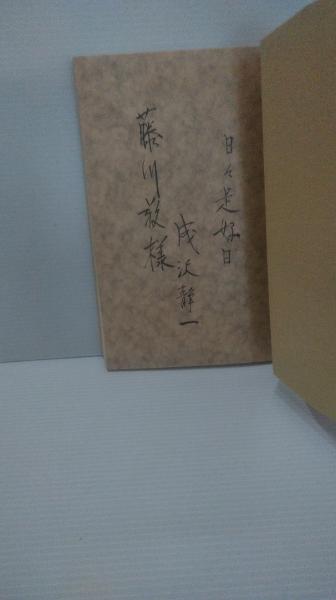 日々是好日
成沢静一
藤川敬様